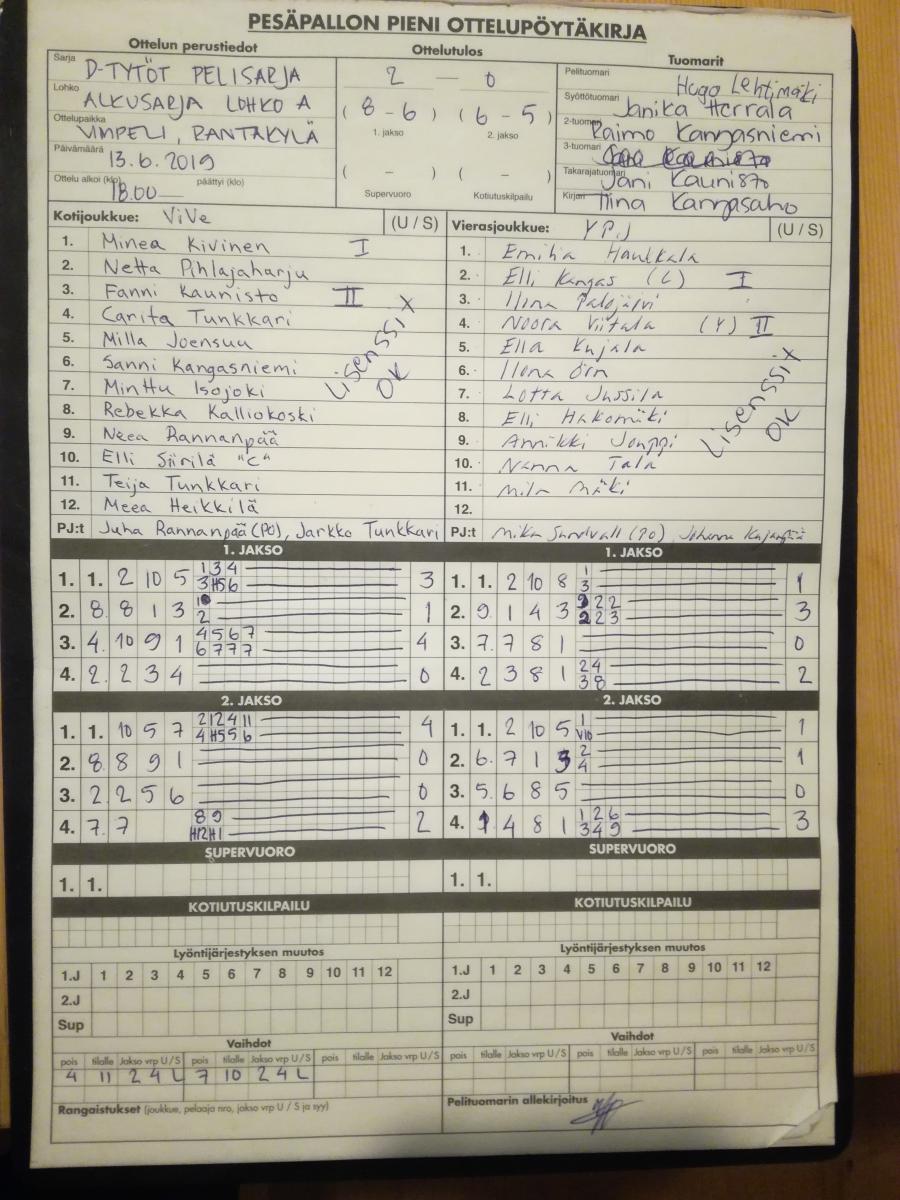 PESÄPALLON PIENI OTTELUPÖYTÄKIRJA
Ottelun perustiedot
Sarja D-TYTÖT PELISARJA
Lohko ALKUSARJA LOHKO A
Ottelupaikka VIMPELI, RANTAKYLÄ
Päivämäärä 13.6.2019
Ottelu alkoi (klo) 18.00 päättyi (klo)
Ottelutulos
2 — 0
(8-6) (6-5)
1. jakso 2. jakso
( - ) ( - )
Supervuoro Kotiutuskilpailu
Tuomarit
Pelituomari Hugo Lehtimäki
Syöttötuomari Janika Herrala
2-tuomari Raimo Kangasniemi
3-tuomari
Takarajatuomari Jani Kauni870
Kirjuri Tiina Kangasaho
Kotijoukkue: ViVe (U / S)
1. Minea Kivinen I
2. Netta Pihlajaharju
3. Fanni Kaunisto II
4. Carita Tunkkari
5. Milla Joensuu
6. Sanni Kangasniemi
7. Minttu Isojoki
8. Rebekka Kalliokoski
9. Neea Rannanpää
10. Elli Siirilä "C"
11. Teija Tunkkari
12. Meea Heikkilä
LisenssiX
OK
PJ:t Juha Rannanpää (PO), Jarkko Tunkkari
Vierasjoukkue: YPJ (U / S)
1. Emilia Hautkala
2. Elli Kangas (L) I
3. Ilona Palojärvi
4. Noora Viitala (Y) II
5. Ella Kujala
6. Ilona Örn
7. Lotta Jussila
8. Elli Hakomäki
9. Annikki Jouppi
10. Nanna Tala
11. Mila Mäki
12.
LisenssiX
OK
PJ:t Mika Sundvall (PO), Johanna
1. JAKSO
1. 1. 2 10 5 1 3 4 3
3 H5 6
2. 8 8 1 3 1 1
2
3. 4 10 9 1 4 5 6 7 4
6 7 7 7
4. 2 2 3 4 0
1. JAKSO
1. 1. 2 10 8 1 1
3
2. 9 1 4 3 2 2 3
2 2 3
3. 7 7 8 1 0
4. 2 3 8 1 2 4 2
3 8
2. JAKSO
1. 1. 10 5 7 2 12 4 11 4
4 H5 5 6
2. 8 8 9 1 0
3. 2 2 5 6 0
4. 7 7 8 9 2
H12 H1
2. JAKSO
1. 1. 2 10 5 1 1
V10
2. 6 7 1 3 2 1
4
3. 5 6 8 5 0
4. 1 4 8 1 1 2 6 3
3 4 9
SUPERVUORO
1. 1.
SUPERVUORO
1. 1.
KOTIUTUSKILPAILU
KOTIUTUSKILPAILU
Lyöntijärjestyksen muutos
1.J 1 2 3 4 5 6 7 8 9 10 11 12
2.J
Sup
Lyöntijärjestyksen muutos
1.J 1 2 3 4 5 6 7 8 9 10 11 12
2.J
Sup
Vaihdot
pois tilalle Jakso vrp U / S pois tilalle Jakso vrp U / S pois tilalle Jakso vrp U / S
4 11 2 4 L 7 10 2 4 L
Vaihdot
pois tilalle Jakso vrp U / S pois tilalle Jakso vrp U / S pois tilalle Jakso vrp U / S
Rangaistukset (joukkue, pelaaja nro, jakso vrp U / S ja syy)
Pelituomarin allekirjoitus